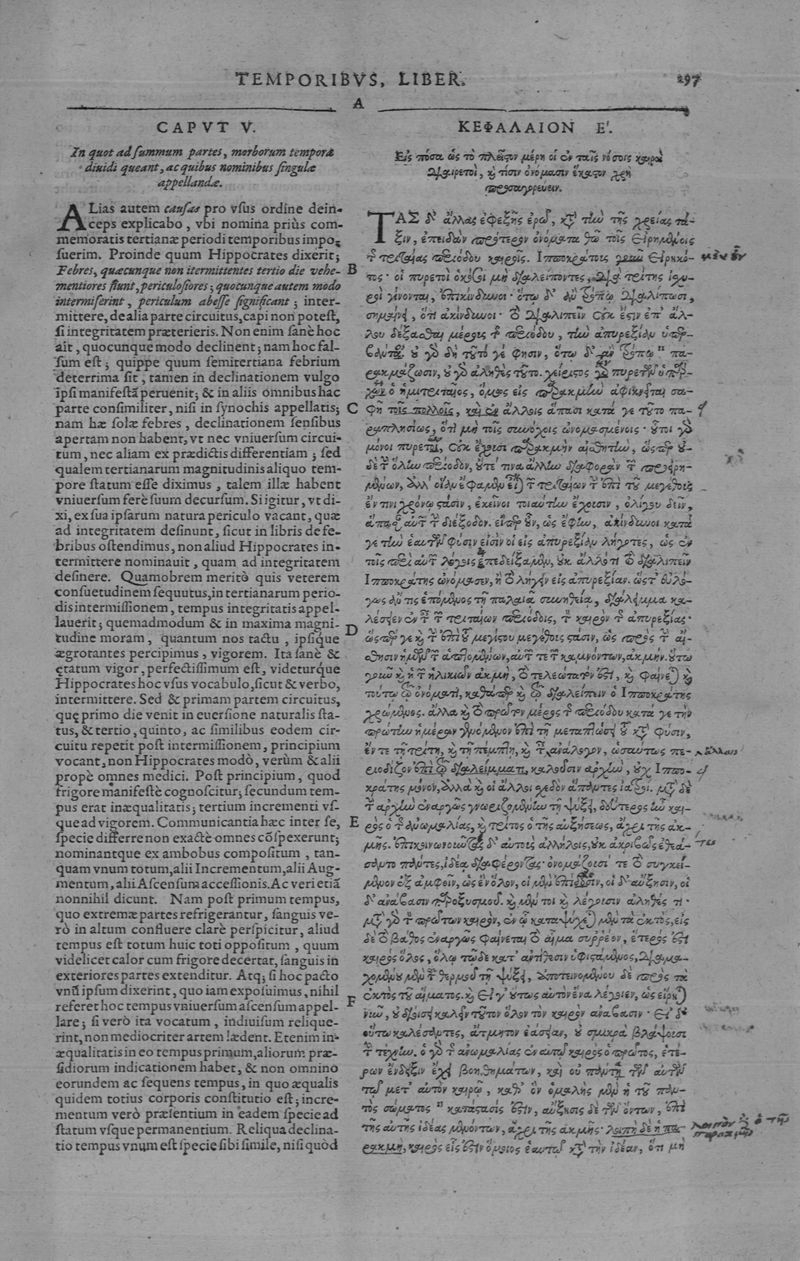 TEMPORIBVS, LIBER. 297
A
CAPVT V.
In quot ad summum partes, morborum tempora
diuidi queant, ac quibus nominibus singulæ
appellandæ.
ALias autem causas pro vsus ordine dein-
ceps explicabo, vbi nomina priùs com-
memoratis tertianæ periodi temporibus impo-
suerim. Proinde quum Hippocrates dixerit;
Febres, quæcunque non itermittentes tertio die vehe-
mentiores fiunt, periculosiores; quocunque autem modo
intermiserint, periculum abesse significant; inter-
mittere, de alia parte circuitus, capi non potest,
si integritatem præterieris. Non enim sanè hoc
ait, quocunque modo declinent; nam hoc fal-
sum est; quippe quum semitertiana febrium
deterrima sit, tamen in declinationem vulgo
ipsi manifestā peruenit; & in aliis omnibus hac
parte consimiliter, nisi in synochis appellatis;
nam hæ solæ febres, declinationem sensibus
apertam non habent, vt nec vniuersum circui-
tum, nec aliam ex prædictis differentiam; sed
qualem tertianarum magnitudinis aliquo tem-
pore statum esse diximus, talem illæ habent
vniuersum ferè suum decursum. Si igitur, vt di-
xi, ex sua ipsarum natura periculo vacant, quæ
ad integritatem desinunt, sicut in libris de fe-
bribus ostendimus, non aliud Hippocrates in-
termittere nominauit, quam ad integritatem
desinere. Quamobrem meritò quis veterem
consuetudinem sequutus, in tertianarum perio-
dis intermissionem, tempus integritatis appel-
lauerit; quemadmodum & in maxima magni-
tudine moram, quantum nos tactu, ipsique
ægrotantes percipimus, vigorem. Ita sanè &
ętatum vigor, perfectissimum est, videturque
Hippocrates hoc vsus vocabulo, sicut & verbo,
intermittere. Sed & primam partem circuitus,
quę primo die venit in euersione naturalis sta-
tus, & tertio, quinto, ac similibus eodem cir-
cuitu repetit post intermissionem, principium
vocant, non Hippocrates modò, verùm & alii
propè omnes medici. Post principium, quod
frigore manifestè cognoscitur, secundum tem-
pus erat inæqualitatis; tertium incrementi vs-
que ad vigorem. Communicantia hæc inter se,
specie differre non exactè omnes cōspexerunt;
nominantque ex ambobus compositum, tan-
quam vnum totum, alii Incrementum, alii Aug-
mentum, alii Ascensum accessionis. Ac veri etiā
nonnihil dicunt. Nam post primum tempus,
quo extremæ partes refrigerantur, sanguis ve-
rò in altum confluere clarè perspicitur, aliud
tempus est totum huic toti oppositum, quum
videlicet calor cum frigore decertat, sanguis in
exteriores partes extenditur. Atq; si hoc pacto
vnū ipsum dixerint, quo iam exposuimus, nihil
referet hoc tempus vniuersum ascensum appel-
lare; si verò ita vocatum, indiuisum relique-
rint, non mediocriter artem lædent. Etenim in-
æqualitatis in eo tempus primum, aliorum præ-
sidiorum indicationem habet, & non omnino
eorundem ac sequens tempus, in quo æqualis
quidem totius corporis constitutio est; incre-
mentum verò præsentium in eadem specie ad
statum vsque permanentium. Reliqua declina-
tio tempus vnum est specie sibi simile, nisi quòd
B
C
D
E
F
ΚΕΦΑΛΑΙΟΝ Ε΄.
Εἰς πόσα ὡς τὸ πλεῖστον μέρη οἱ ἐν ταῖς νόσοις καιροὶ
διαιρετοὶ, καὶ τίσιν ὀνόμασιν ἕκαστον χρὴ
προσαγορεύειν.
ΤΑΣ δ' ἄλλας ἐφεξῆς ἐρῶ, κατὰ τὴν τῆς χρείας τά-
ξιν, ἐπειδὰν πρότερον ὀνόματα θῶ τοῖς εἰρημένοις
τῆς τριταίας περιόδου καιροῖς. Ἱπποκράτους εἰρηκό-
τος· οἱ πυρετοὶ ὁκόσοι μὴ διαλείποντες, διὰ τρίτης ἰσχυ-
ροὶ γίνονται, ἐπικίνδυνοι· ὅτῳ δ' ἂν τρόπῳ διαλίπωσι,
σημαίνει, ὅτι ἀκίνδυνοι· τὸ διαλιπεῖν οὐκ ἔστιν ἐπ' ἄλ-
λου δέξασθαι μέρους τῆς περιόδου, τὴν ἀπυρεξίαν
οὐ γὰρ δὴ τοῦτό γέ φησιν, ὅτῳ δ' ἂν τρόπῳ πα-
ρακμάζωσιν, οὐ γὰρ ἀληθὲς τοῦτο.
ὁ ἡμιτριταῖος, ὅμως εἰς παρακμὴν ἀφικνεῖται σα-
φῆ τοῖς πολλοῖς, ἄλλοις ἅπασι κατά γε τοῦτο πα-
ραπλησίως, ὅτι μὴ τοῖς συνόχοις ὀνομασμένοις· οὗτοι γὰρ
μόνοι πυρετοὶ, οὐκ ἔχουσι παρακμὴν αἰσθητὴν, ὥσπερ οὐ-
δὲ τὴν ὅλην περίοδον, οὔτέ τινα ἄλλην διαφορὰν τῶν προειρη-
μένων, ἀλλ' οἵαν ἔφαμεν εἶναι τῶν τριταίων τὴν ἐπὶ τοῦ μεγέθους
ἔν τινι χρόνῳ στάσιν, ἐκεῖνοι τοιαύτην ἔχουσιν, ὀλίγου δεῖν,
ἅπασαν αὐτῶν τὴν διέξοδον. εἴπερ οὖν, ὡς ἔφην, ἀκίνδυνοι κατά
γε τὴν ἑαυτῶν φύσιν εἰσὶν οἱ εἰς ἀπυρεξίαν λήγοντες, ὡς ἐν
τοῖς περὶ αὐτῶν λόγοις ἐπεδείξαμεν, οὐκ ἄλλο τι τὸ διαλιπεῖν
Ἱπποκράτης ὠνόμασεν, ἢ τὸ λήγειν εἰς ἀπυρεξίαν. ὥστ' εὐλό-
γως ἄν τις ἑπόμενος τῇ παλαιᾷ συνηθείᾳ, διάλειμμα κα-
λέσειεν ἐν ταῖς τῶν τριταίων περιόδοις, τὸν καιρὸν τῆς ἀπυρεξίας·
ὥσπερ γε καὶ τὴν ἐπὶ τοῦ μεγίστου μεγέθους στάσιν, ὡς πρὸς τὴν αἴ-
σθησιν ἡμῶν τῶν ἁπτομένων, αὐτῶν τε τῶν καμνόντων, ἀκμήν. οὕτω
γοῦν καὶ ἡ τῶν ἡλικιῶν ἀκμὴ, τὸ τελεώτατόν ἐστι, καὶ φαίνεται καὶ
τούτῳ τῷ ὀνόματι, καθάπερ καὶ τῷ διαλείπειν ὁ Ἱπποκράτης
χρώμενος. ἀλλὰ καὶ τὸ πρῶτον μέρος τῆς περιόδου κατά γε τὴν
πρώτην ἡμέραν γενόμενον ἐπὶ τῇ μεταπτώσει τοῦ κατὰ φύσιν,
ἔν τε τῇ τρίτῃ, καὶ τῇ πέμπτῃ, καὶ ἀνάλογον, ὡσαύτως πε-
ριοδίζον ἐπὶ τῷ διαλείμματι, καλοῦσιν ἀρχὴν, οὐχ Ἱππο-
κράτης μόνον, ἀλλὰ καὶ οἱ ἄλλοι σχεδὸν ἅπαντες ἰατροί. μετὰ δὲ
τὴν ἀρχὴν ἐναργῶς γνωριζομένην τῇ ψύξει, δεύτερος ἦν και-
ρὸς ὁ τῆς ἀνωμαλίας, καὶ τρίτος ὁ τῆς αὐξήσεως, ἄχρι τῆς ἀκ-
μῆς. ἐπικοινωνούσας δ' αὐτοὺς ἀλλήλοις, οὐκ ἀκριβῶς ἐθεά-
σαντο πάντες, ἰδέᾳ διαφέροντας· ὀνομάζουσί τε τὸ συγκεί-
μενον ἐξ ἀμφοῖν, ὡς ἓν ὅλον, οἱ μὲν ἐπίδοσιν, οἱ δ' αὔξησιν, οἱ
δ' ἀνάβασιν παροξυσμοῦ. καὶ μέν τοι καὶ λέγουσιν ἀληθές τι·
μετὰ γὰρ τὸν πρῶτον καιρὸν, ἐν ᾧ καταψύχεται μὲν τὰ ἐκτὸς, εἰς
δὲ τὸ βάθος ἐναργῶς φαίνεται τὸ αἷμα συρρέον, ἕτερός ἐστι
καιρὸς ὅλος, ὅλῳ τῷδε κατ' ἀντίθεσιν ὑφιστάμενος, διαμα-
χομένου μὲν τοῦ θερμοῦ τῇ ψύξει, ἀποτεινομένου δὲ πρὸς τὰ
ἐκτὸς τοῦ αἵματος. καὶ εἴ γ' οὕτως αὐτὸν ἕνα λέγοιεν, ὡς εἴρηται
νῦν, οὐ διοίσει καλεῖν τοῦτον ὅλον τὸν καιρὸν ἀνάβασιν· εἰ δ'
οὕτω καλέσαντες, ἄτμητον ἐάσειαν, οὐ σμικρὰ βλάψουσι
τὴν τέχνην. ὁ γὰρ τῆς ἀνωμαλίας ἐν αὐτῷ καιρὸς ὁ πρῶτος, ἑτέ-
ρων ἔνδειξιν ἔχει βοηθημάτων, καὶ οὐ πάντῃ τῶν αὐτῶν
τῷ μετ' αὐτὸν καιρῷ, καθ' ὃν ὁμαλὴς μὲν ἡ τοῦ παν-
τὸς σώματος κατάστασίς ἐστιν, αὔξησις δὲ τῶν ὄντων, ἐπὶ
τῆς αὐτῆς ἰδέας μενόντων, ἄχρι τῆς ἀκμῆς· λοιπὴ δὲ ἡ πα-
ρακμὴ, καιρὸς εἷς ἐστιν ὅμοιος ἑαυτῷ κατὰ τὴν ἰδέαν, ὅτι μὴ